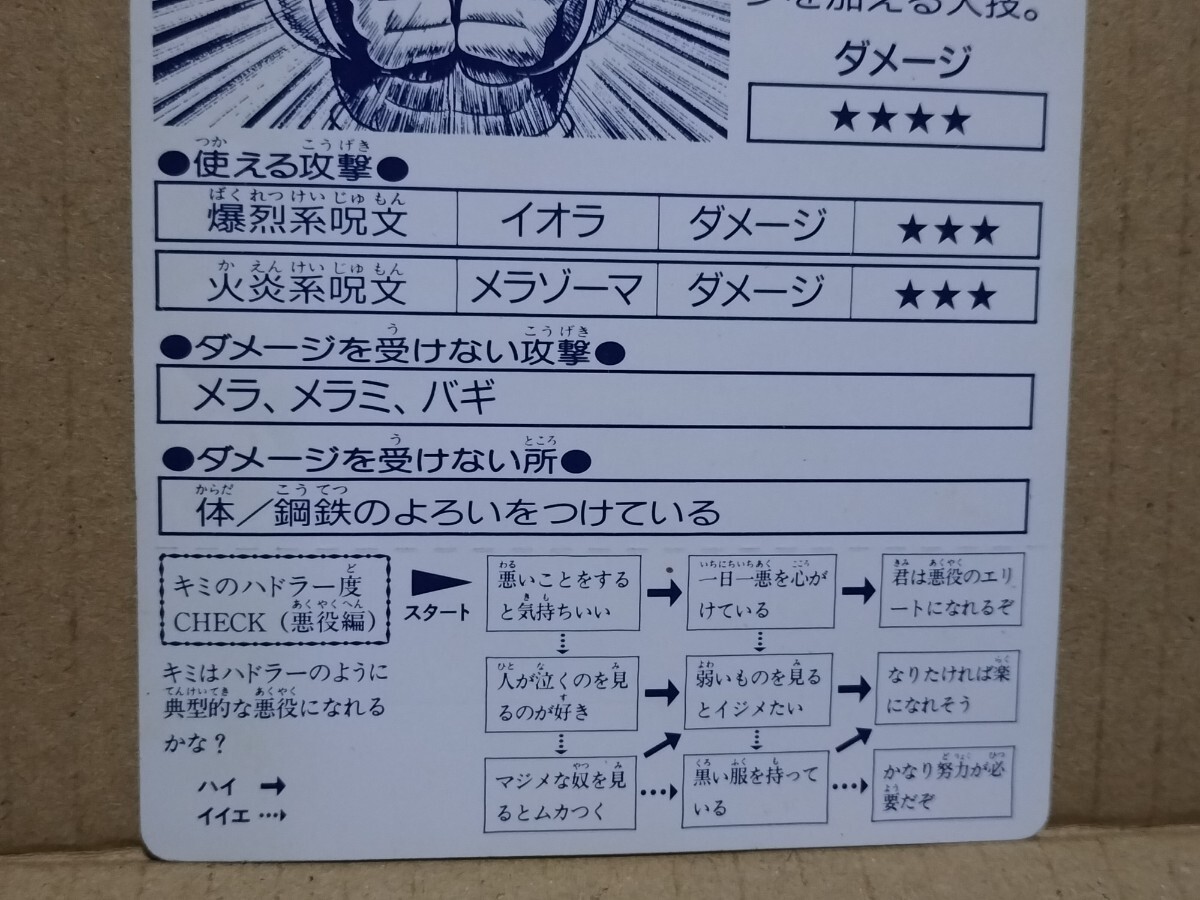 を加える大技。
ダメージ
★★★★
●使える攻撃●
爆烈系呪文 イオラ ダメージ ★★★
火炎系呪文 メラゾーマ ダメージ ★★★
●ダメージを受けない攻撃●
メラ、メラミ、バギ
●ダメージを受けない所●
体/鋼鉄のよろいをつけている
キミのハドラー度
CHECK（悪役編）
キミはハドラーのように
典型的な悪役になれる
かな？
ハイ →
イイエ …→
スタート
悪いことをする
と気持ちいい
一日一悪を心が
けている
君は悪役のエリ
ートになれるぞ
人が泣くのを見
るのが好き
弱いものを見る
とイジメたい
なりたければ楽
になれそう
マジメな奴を見
るとムカつく
黒い服を持って
いる
かなり努力が必
要だぞ